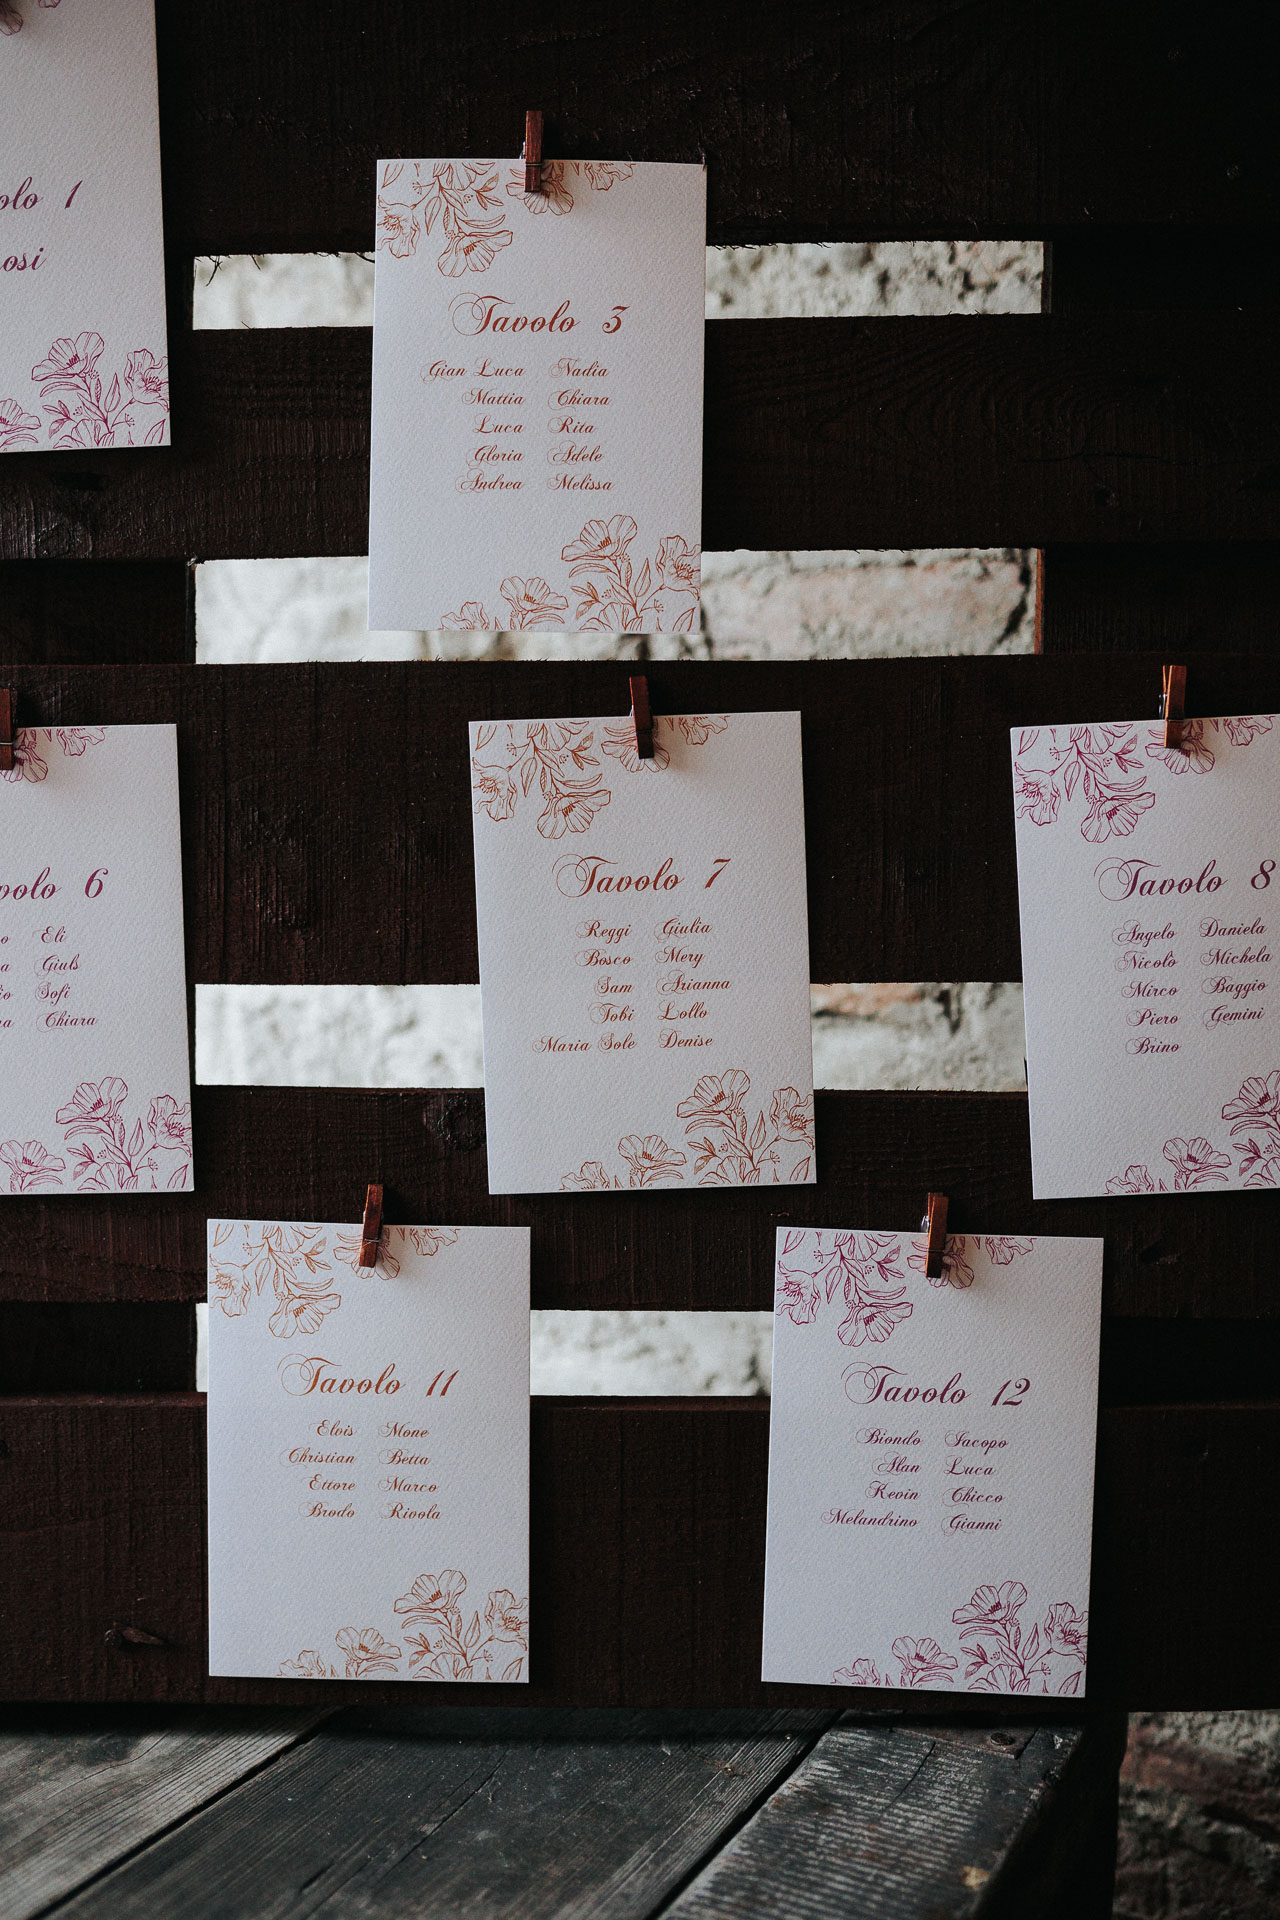 1
Tavolo 3
Gian Luca Nadia
Mattia Chiara
Luca Rita
Gloria Adele
Andrea Melissa
6
Eli
Giuls
Sofi
Chiara
Tavolo 7
Reggi Giulia
Bosco Mery
Sam Arianna
Tobi Lollo
Maria Sole Denise
Tavolo 8
Angelo Daniela
Nicolò Michela
Mirco Baggio
Piero Gemini
Brino
Tavolo 11
Elvis Mone
Christian Betta
Ettore Marco
Brodo Rivola
Tavolo 12
Biondo Iacopo
Alan Luca
Kevin Chicco
Melandrino Gianni